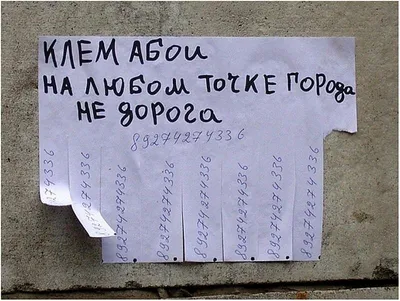 КЛЕМ АБОИ
НА ЛЮБОМ ТОЧКЕ ГОРОДА
НЕ ДОРОГА
89274274336
74336
4274336
89274274336
89274274336
89274274336
89274274336
89274274336
89274274336